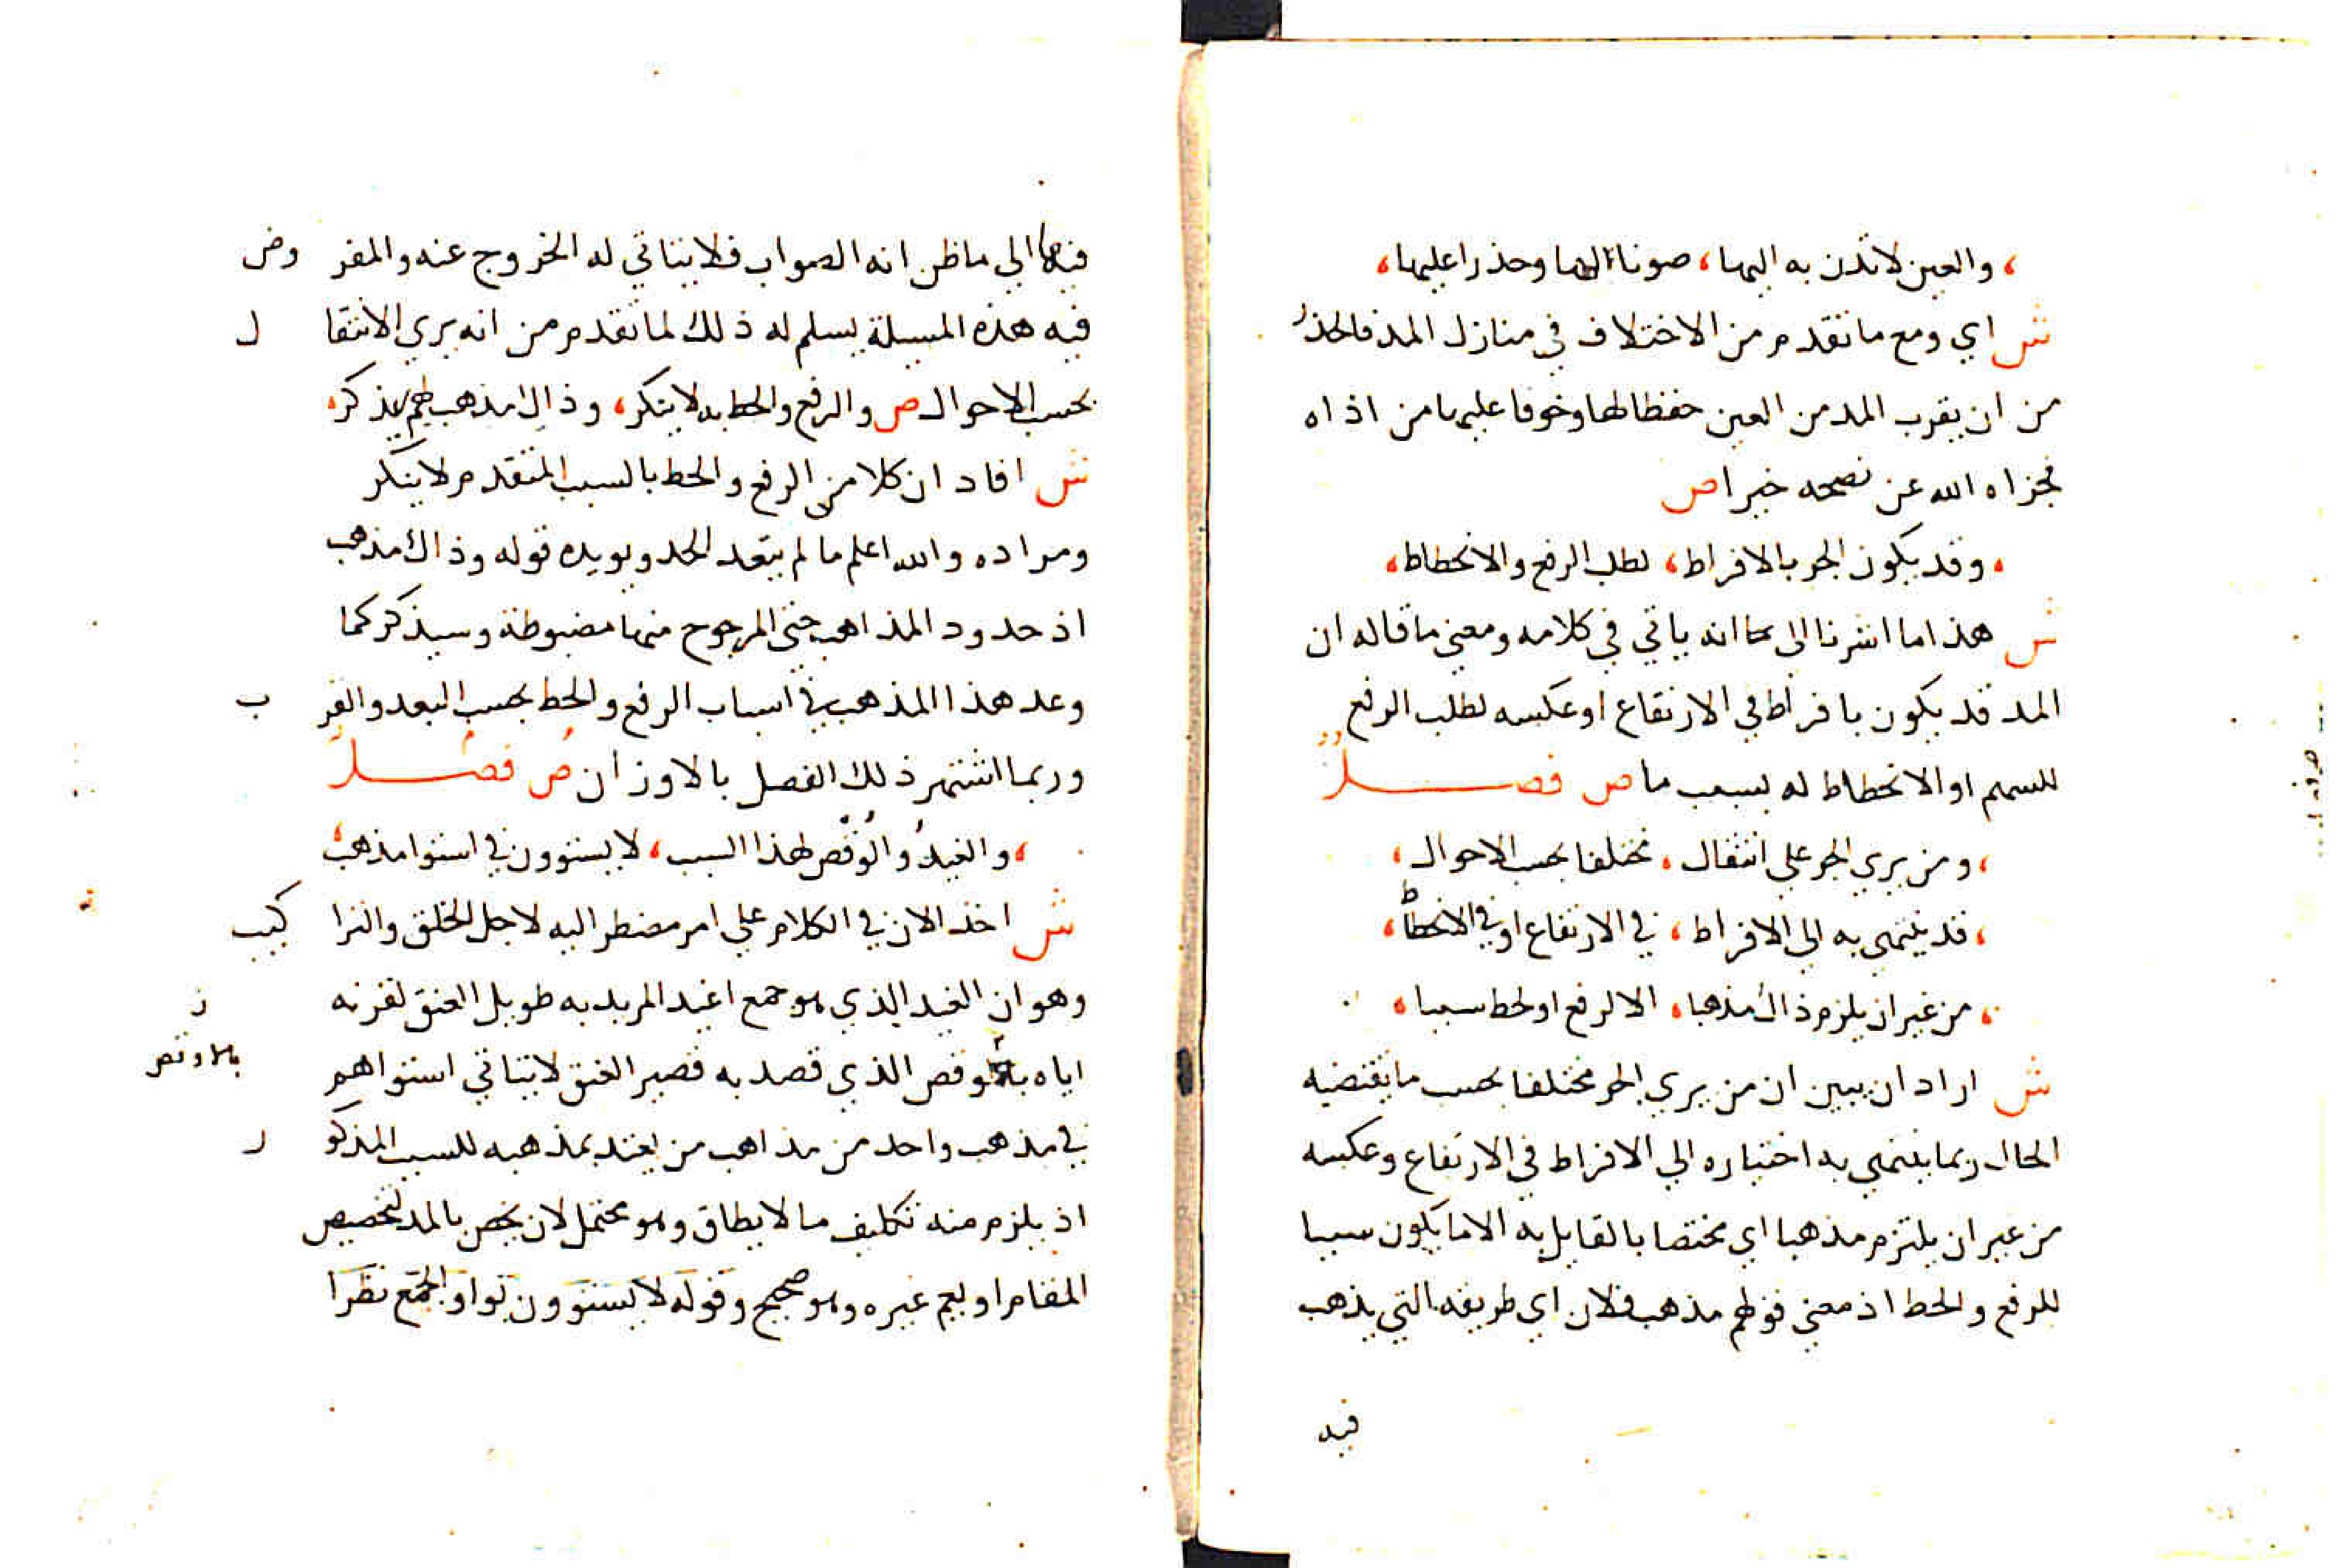 ، والعين لا تدن به اليها ، صونا لها وحذرا عليها ،
ش اي ومع ما تقدم من الاختلاف في منازل المد فالحذر
من ان يقرب المد من العين حفظا لها وخوفا عليها من اذاه
فجزاه الله عن نصحه خيرا ص
، وقد يكون الجر بالافراط ، لطلب الرفع والانحطاط ،
ش هذا ما اشرنا الى انه ياتي في كلامه ومعنى ما قاله ان
المد قد يكون بافراط في الارتقاع او عكسه لطلب الرفع
للسهم او الانحطاط له بسبب ما ص فصل
، ومن يري الجر علي انتقال ، مختلفا بحسب الاحوال ،
، قد ينتهي به الي الافراط ، في الارتفاع او في الانحطاط ،
، من غير ان يلزم ذاك مذهبا ، الا لرفع او لحط سببا ،
ش اراد ان يبين ان من يري الجر مختلفا بحسب ما يقتضيه
الحال ربما ينتهي به اختياره الي الافراط في الارتفاع وعكسه
من غير ان يلتزم مذهبا اي مختصا بالقايل به الا ما يكون سببا
للرفع والحط اذ معنى قولهم مذهب فلان اي طريقه التي يذهب
فيه
فيها الي ما ظن انه الصواب فلا يتاتي له الخروج عنه والمفر وض
فيه هذه المسيلة يسلم له ذلك لما تقدم من انه يري الانتقا ل
بحسب الاحوال ص والرفع والحط به لا ينكر ، وذاك مذهب لهم يذكر ،
ش افاد ان كلا من الرفع والحط بالسبب المتقدم لا ينكر
ومراده والله اعلم ما لم يتعد الحد ويويده قوله وذاك مذهب
اذ حدود المذاهب حتى المرجوح منها مضبوطة وسيذكر كما
وعد هذا المذهب في اسباب الرفع والحط بحسب البعد والقر ب
وربما اشتهر ذلك الفصل بالاوزان ص فصل
، والغيد والوقص لهذا السبب ، لا يستوون في استوا مذهب ،
ش اخذ الان في الكلام علي امر مضطر اليه لاجل الخلق والترا كيب
وهو ان الغيد الذي هو جمع اغيد المريد به طويل العنق لقرنه
اياه بالاوقص الذي قصد به قصير العنق لا يتاتي استواهم
في مذهب واحد من مذاهب من يعتد بمذهبه للسبب المذكو ر
اذ يلزم منه تكليف ما لا يطاق وهو محتمل لان يخص بالمد لتخصيص
المقام او يعم غيره وهو صحيح وقوله لا يستوون بواو الجمع نظرا